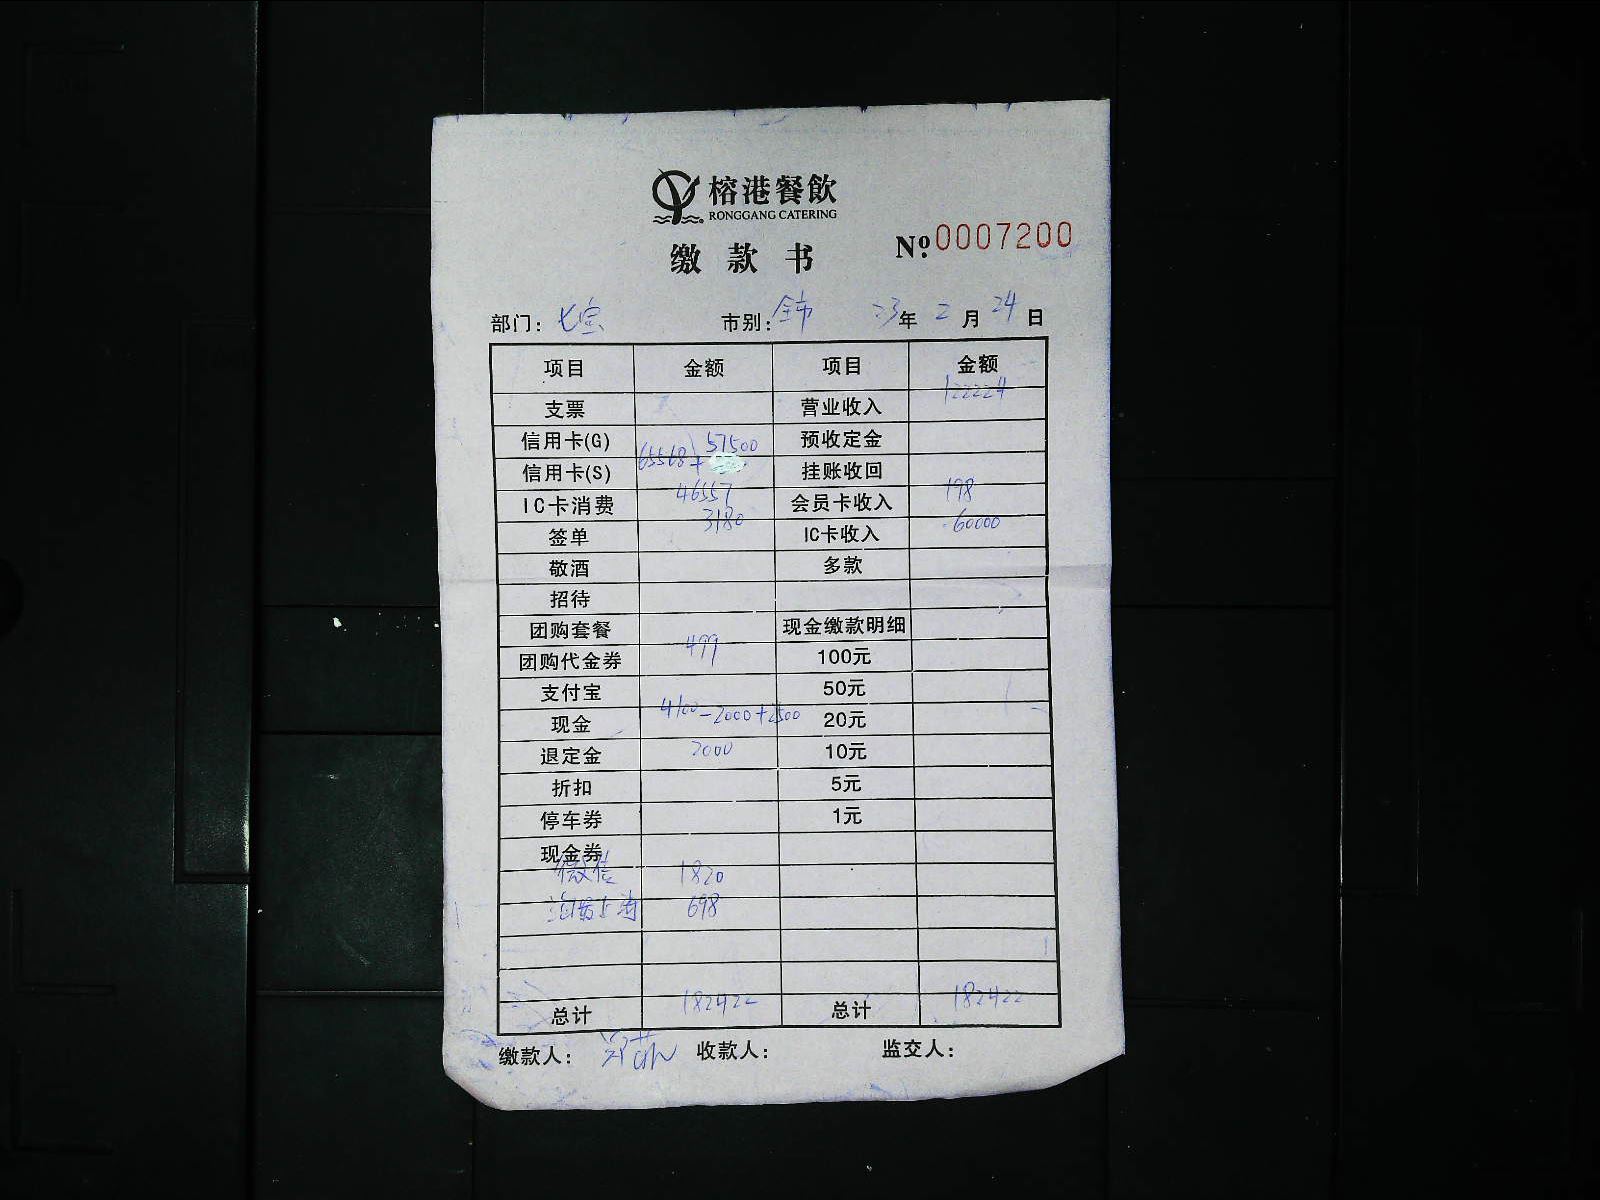 榕港餐飲
RONGGANG CATERING
缴款书 Nº 0007200
部门：七宝 市别：全市 23年 2月 24日
项目 金额 项目 金额
支票 营业收入 122224
信用卡(G) 65568 + 57500 预收定金
信用卡(S) 挂账收回
IC卡消费 46557 会员卡收入 198
签单 3180 IC卡收入 60000
敬酒 多款
招待
团购套餐 现金缴款明细
团购代金券 499 100元
支付宝 50元
现金 4100-2000+2500 20元
退定金 2000 10元
折扣 5元
停车券 1元
现金券
微信 1820
698
总计 182422 总计 182422
缴款人： 收款人： 监交人：